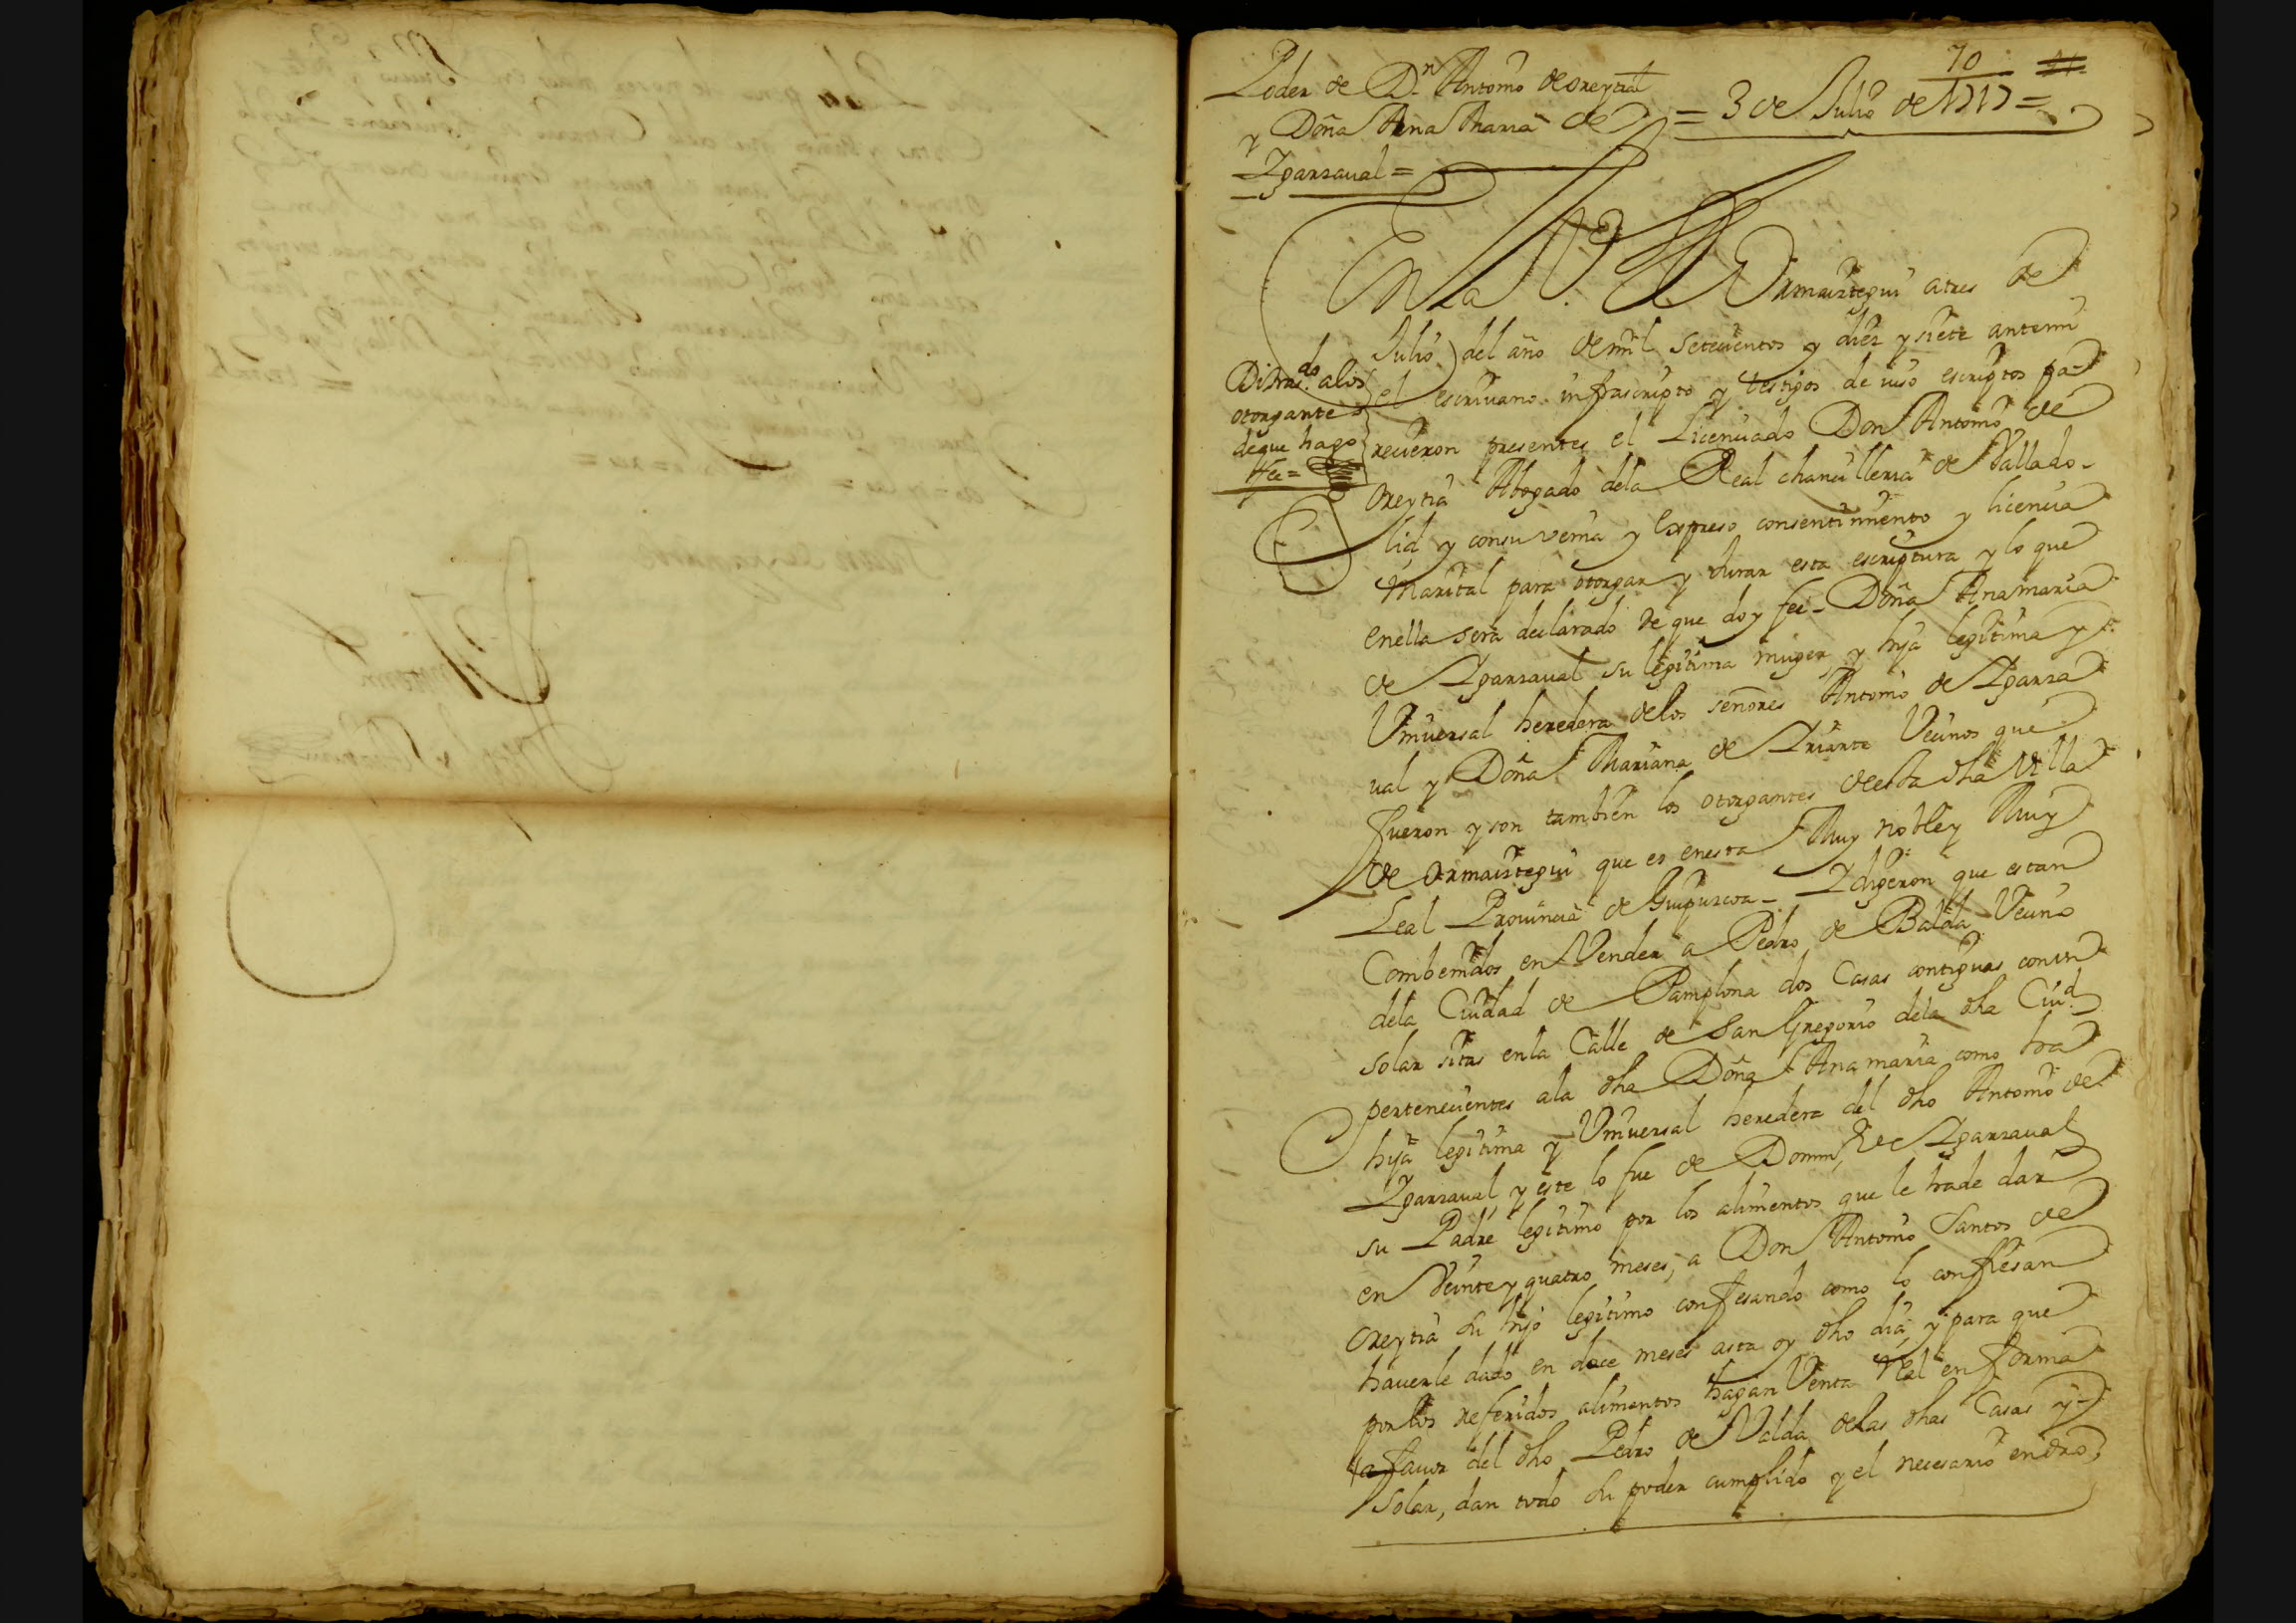 70
Poder de D.n Antonio de oreytia
y Doña Ana Maria de = 3 de Julio de 1717 =
Ygarzaual =
En la V.a de Ormaiztegui a tres de
Julio del año de mil setecientos y diez y siete antemi
el escriuano infrascripto y testigos de iuso escriptos pa-
recieron presentes el Licenciado Don Antonio de
Oreytia Abogado dela Real chancilleria de Vallado-
lid y con su venia y expreso consentimiento y licencia
Marital para otorgar y Jurar esta escriptura y lo que
enella sera declarado de que doy fee - Doña Anamaria
de Ygarzaual su legitima muger, y hija legitima y
Vniuersal heredera delos señores Antonio de Ygarza
ual y Doña Mariana de Yriarte Vecinos que
fueron y son tambien los otorgantes de esta dha Villa
de Ormaiztegui que es enesta Muy noble y Muy
Leal Prouincia de Guipuzcoa - Y digeron que estan
Combenidos en Vender a Pedro de Balda Vecino
dela Ciudad de Pamplona dos Casas contiguas con vn
solar sitas enla Calle de San Gregorio dela dha Ciud.
pertenecientes ala dha Doña Ana maria como tra
hija legitima y Vniuersal heredera del dho Antonio de
Ygarzaual, y este lo fue de Domin.o de Ygarzaual
su Padre legitimo por los alimentos que le hade dar
en Veinte y quatro meses, a Don Antonio Santos de
Oreytia su hijo legitimo confesando como lo confiesan
hauerle dado en doce meses asta oy dho dia, y para que
por los referidos alimentos hagan Venta Rl en forma
a fauor del dho Pedro de Valda delas dhas Casas y
Solar, dan todo su poder cumplido y el necesario en dro
alos
otorgantes
de que hago
fee =